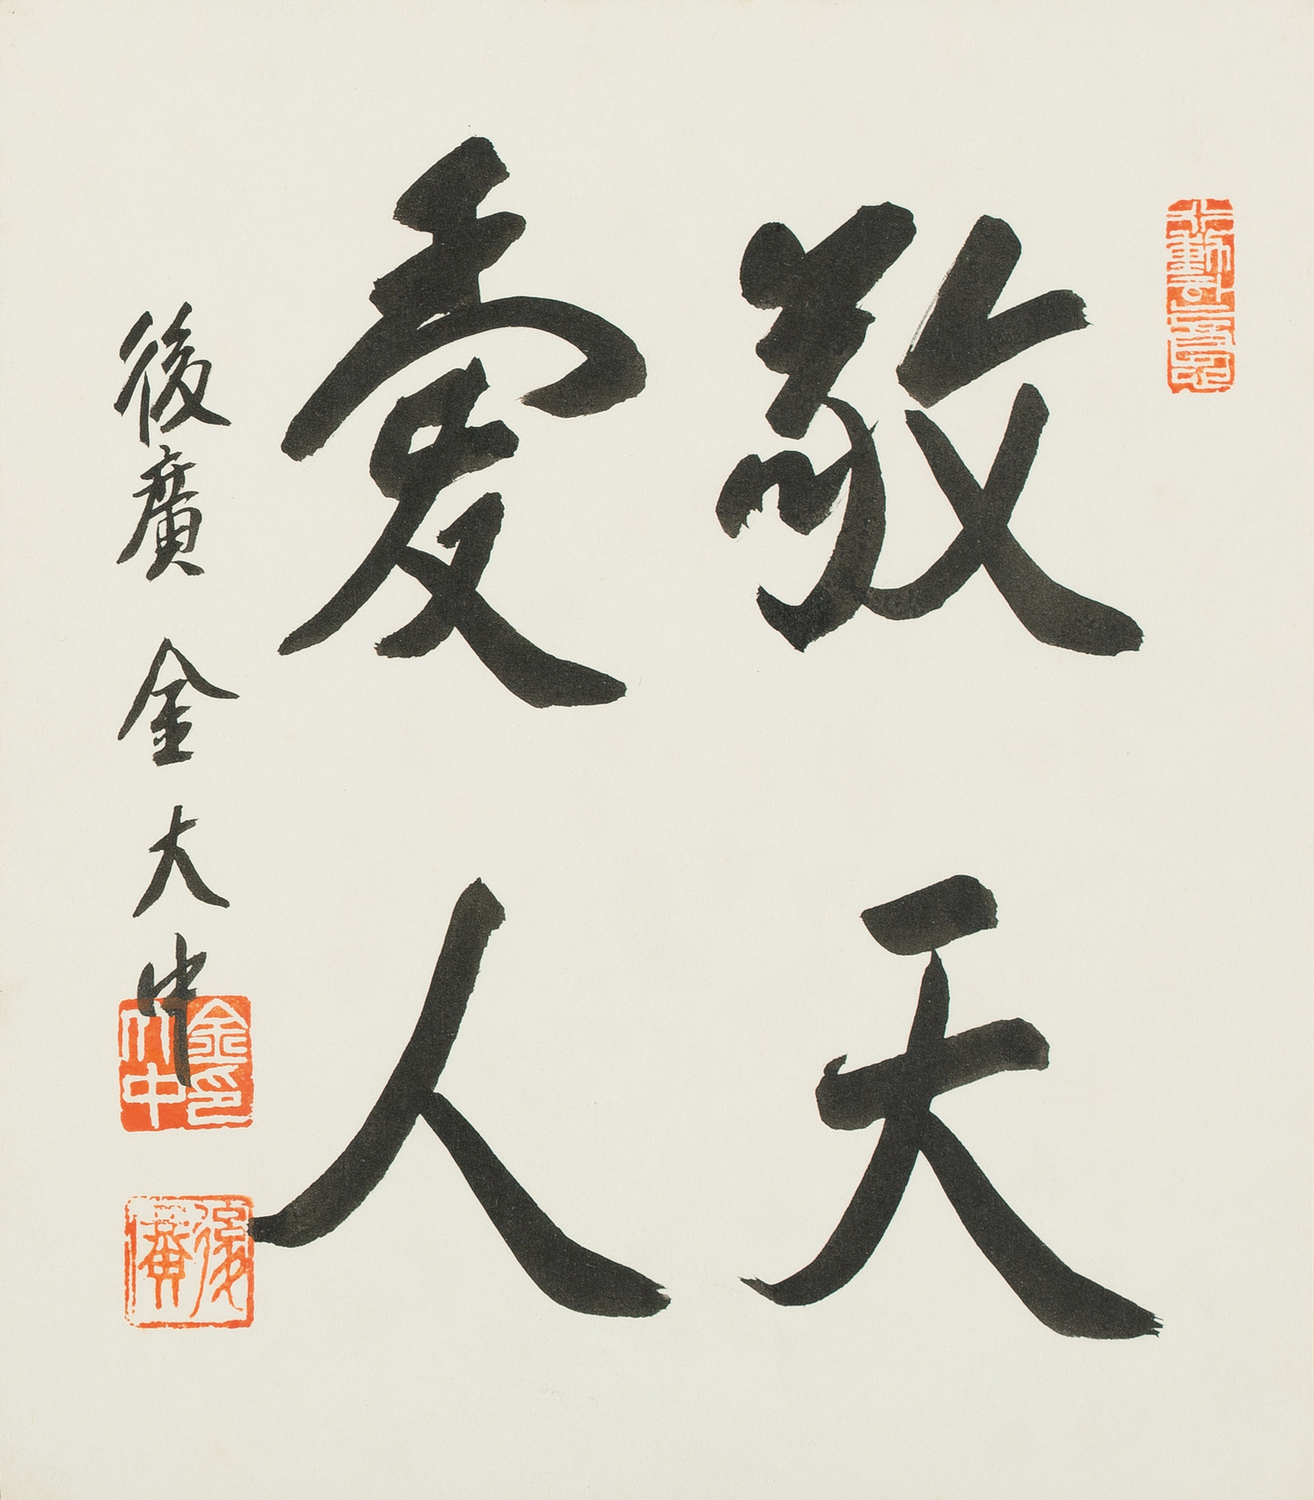 敬天
愛人
後廣 金大中
金大中印
後廣